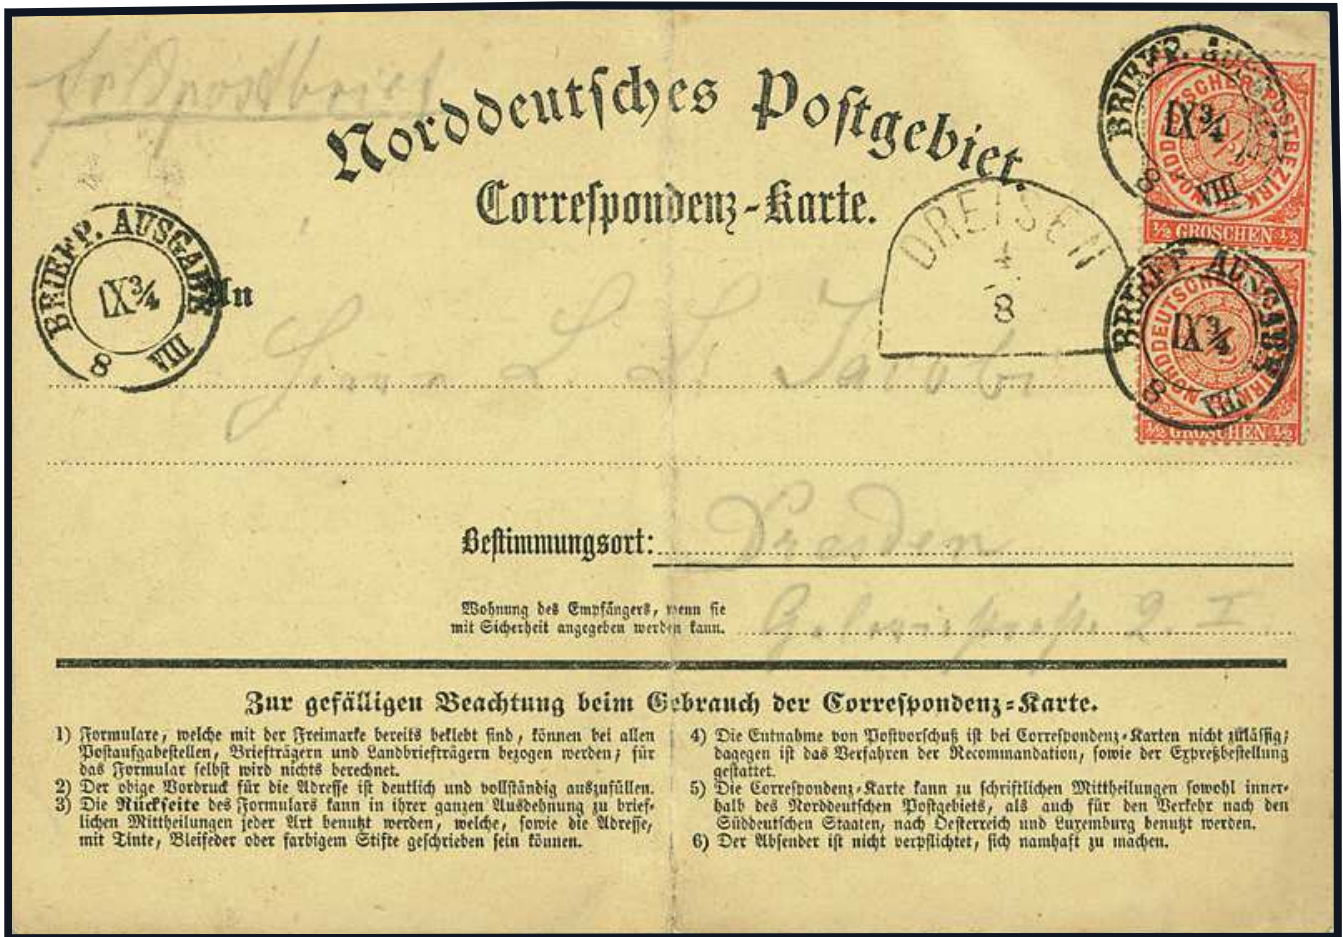 Feldpostbrief
Norddeutsches Postgebiet.
Correspondenz-Karte.
NORDDEUTSCHER POSTBEZIRK
½ GROSCHEN ½
BRIEFP. AUSGABE
IX¾
8 VIII
NORDDEUTSCHER POSTBEZIRK
½ GROSCHEN ½
BRIEFP. AUSGABE
IX¾
8 VIII
DREISEN
4
8
BRIEFP. AUSGABE
IX¾
8 VIII
An
L. L. Jacobi
Bestimmungsort: Dresden
Wohnung des Empfängers, wenn sie
mit Sicherheit angegeben werden kann. 2. I
Zur gefälligen Beachtung beim Gebrauch der Correspondenz-Karte.
1) Formulare, welche mit der Freimarke bereits beklebt sind, können bei allen
Postaufgabestellen, Briefträgern und Landbriefträgern bezogen werden; für
das Formular selbst wird nichts berechnet.
2) Der obige Vordruck für die Adresse ist deutlich und vollständig auszufüllen.
3) Die Rückseite des Formulars kann in ihrer ganzen Ausdehnung zu brief-
lichen Mittheilungen jeder Art benutzt werden, welche, sowie die Adresse,
mit Tinte, Bleifeder oder farbigem Stifte geschrieben sein können.
4) Die Entnahme von Postvorschuß ist bei Correspondenz-Karten nicht zulässig;
dagegen ist das Verfahren der Recommandation, sowie der Expreßbestellung
gestattet.
5) Die Correspondenz-Karte kann zu schriftlichen Mittheilungen sowohl inner-
halb des Norddeutschen Postgebiets, als auch für den Verkehr nach den
Süddeutschen Staaten, nach Oesterreich und Luxemburg benutzt werden.
6) Der Absender ist nicht verpflichtet, sich namhaft zu machen.